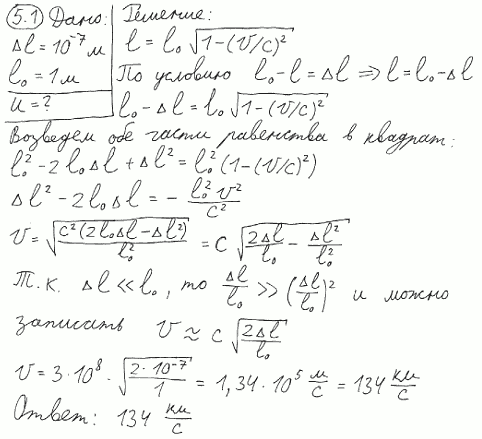 5.1 Дано: Решение:
Δl = 10⁻⁷ м l = l₀ √(1-(v/c)²)
l₀ = 1 м По условию l₀ - l = Δl ⇒ l = l₀ - Δl
u = ? l₀ - Δl = l₀ √(1-(v/c)²)
Возведем обе части равенства в квадрат:
l₀² - 2 l₀ Δl + Δl² = l₀² (1-(v/c)²)
Δl² - 2 l₀ Δl = - l₀² v² / c²
v = √(c² (2 l₀ Δl - Δl²) / l₀²) = c √(2Δl / l₀ - Δl² / l₀²)
Т.к. Δl << l₀, то Δl/l₀ >> (Δl/l₀)² и можно
записать v ≈ c √(2Δl / l₀)
v = 3·10⁸ · √(2·10⁻⁷ / 1) = 1,34·10⁵ м/с = 134 км/с
Ответ: 134 км/с